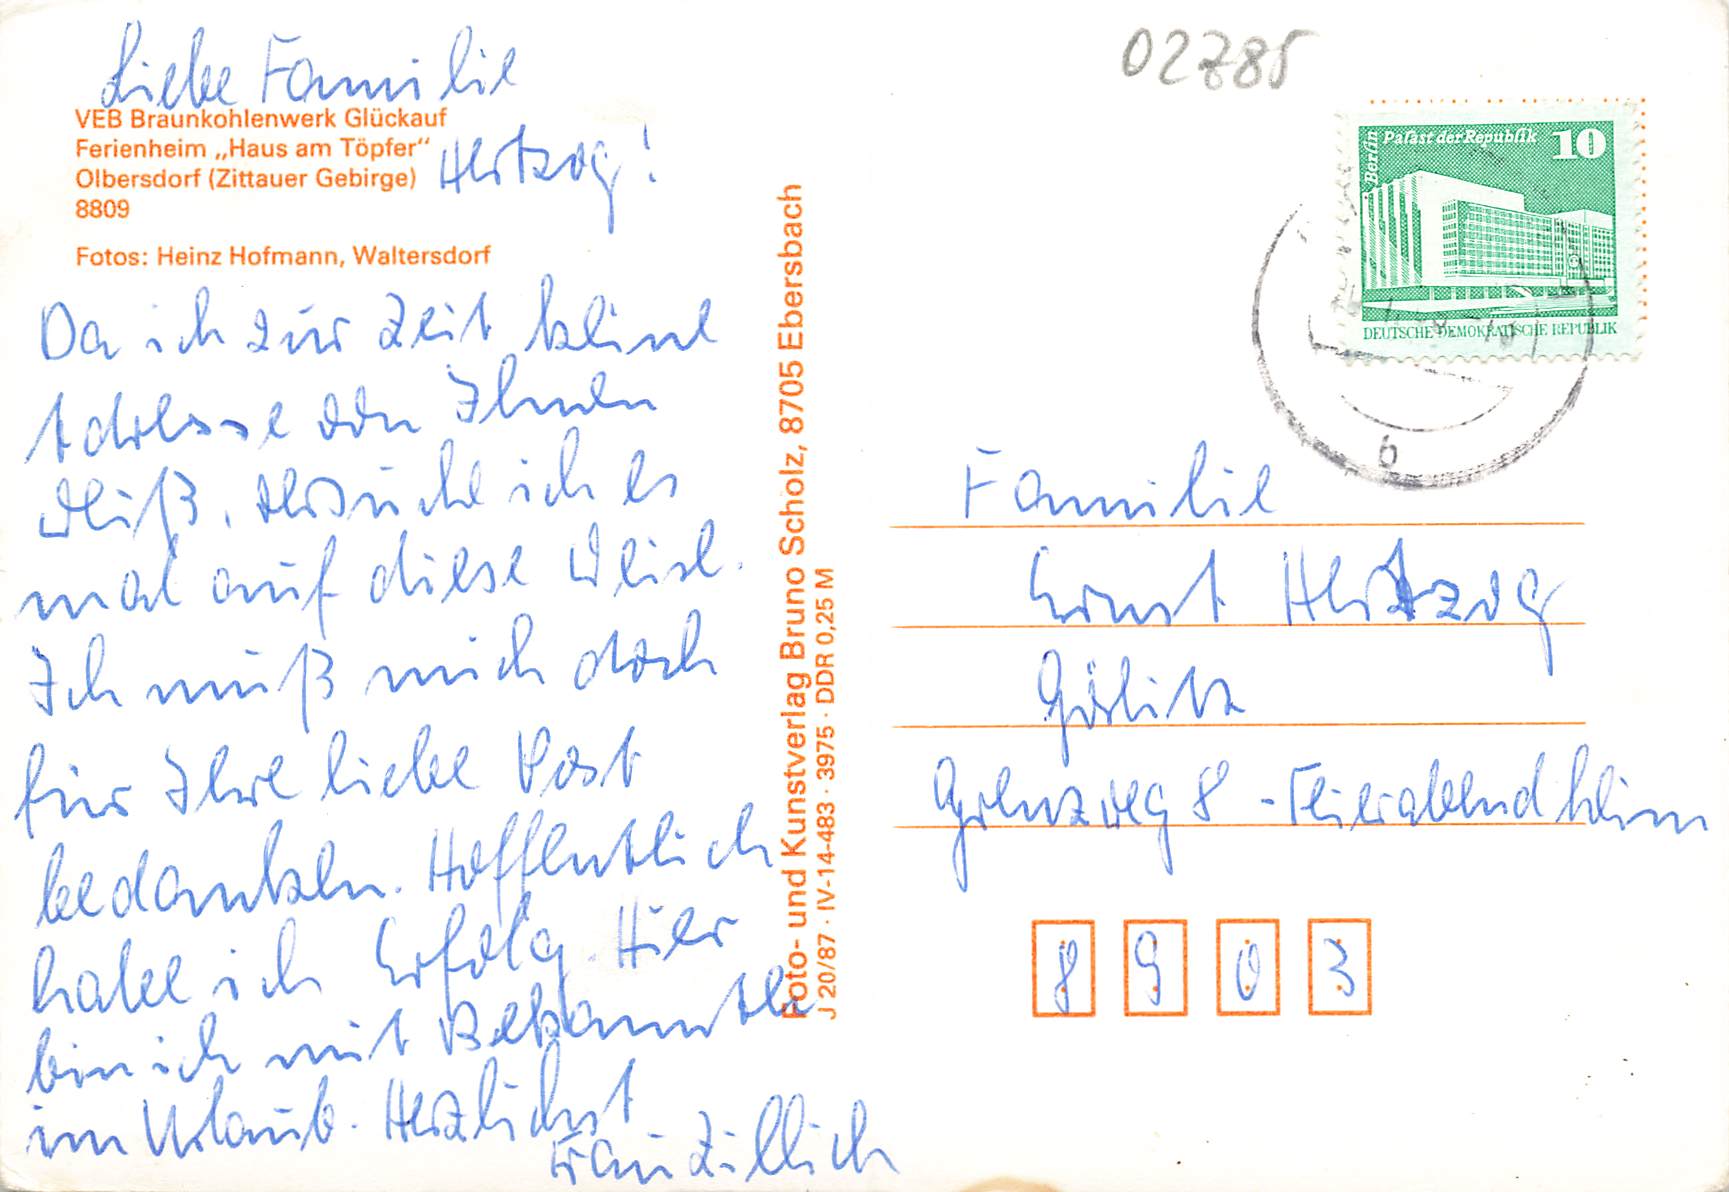 Liebe Familie
Hertzog!
VEB Braunkohlenwerk Glückauf
Ferienheim „Haus am Töpfer“
Olbersdorf (Zittauer Gebirge)
8809
Fotos: Heinz Hofmann, Waltersdorf
Da ich zur Zeit keine
Adresse von Ihnen
weiß, versuche ich es
mal auf diese Weise.
Ich muß mich doch
für Ihre liebe Post
bedanken. Hoffentlich
habe ich Erfolg. Hier
bin ich mit Bekannten
im Urlaub. Herzlichst
Frau Zillich
Foto- und Kunstverlag Bruno Scholz, 8705 Ebersbach
J 20/87 · IV-14-483 · 3975 · DDR 0,25 M
02785
Berlin
Palast der Republik 10
DEUTSCHE DEMOKRATISCHE REPUBLIK
b
Familie
Ernst Hertzog
Görlitz
Grenzweg 8 - Feierabendheim
8903